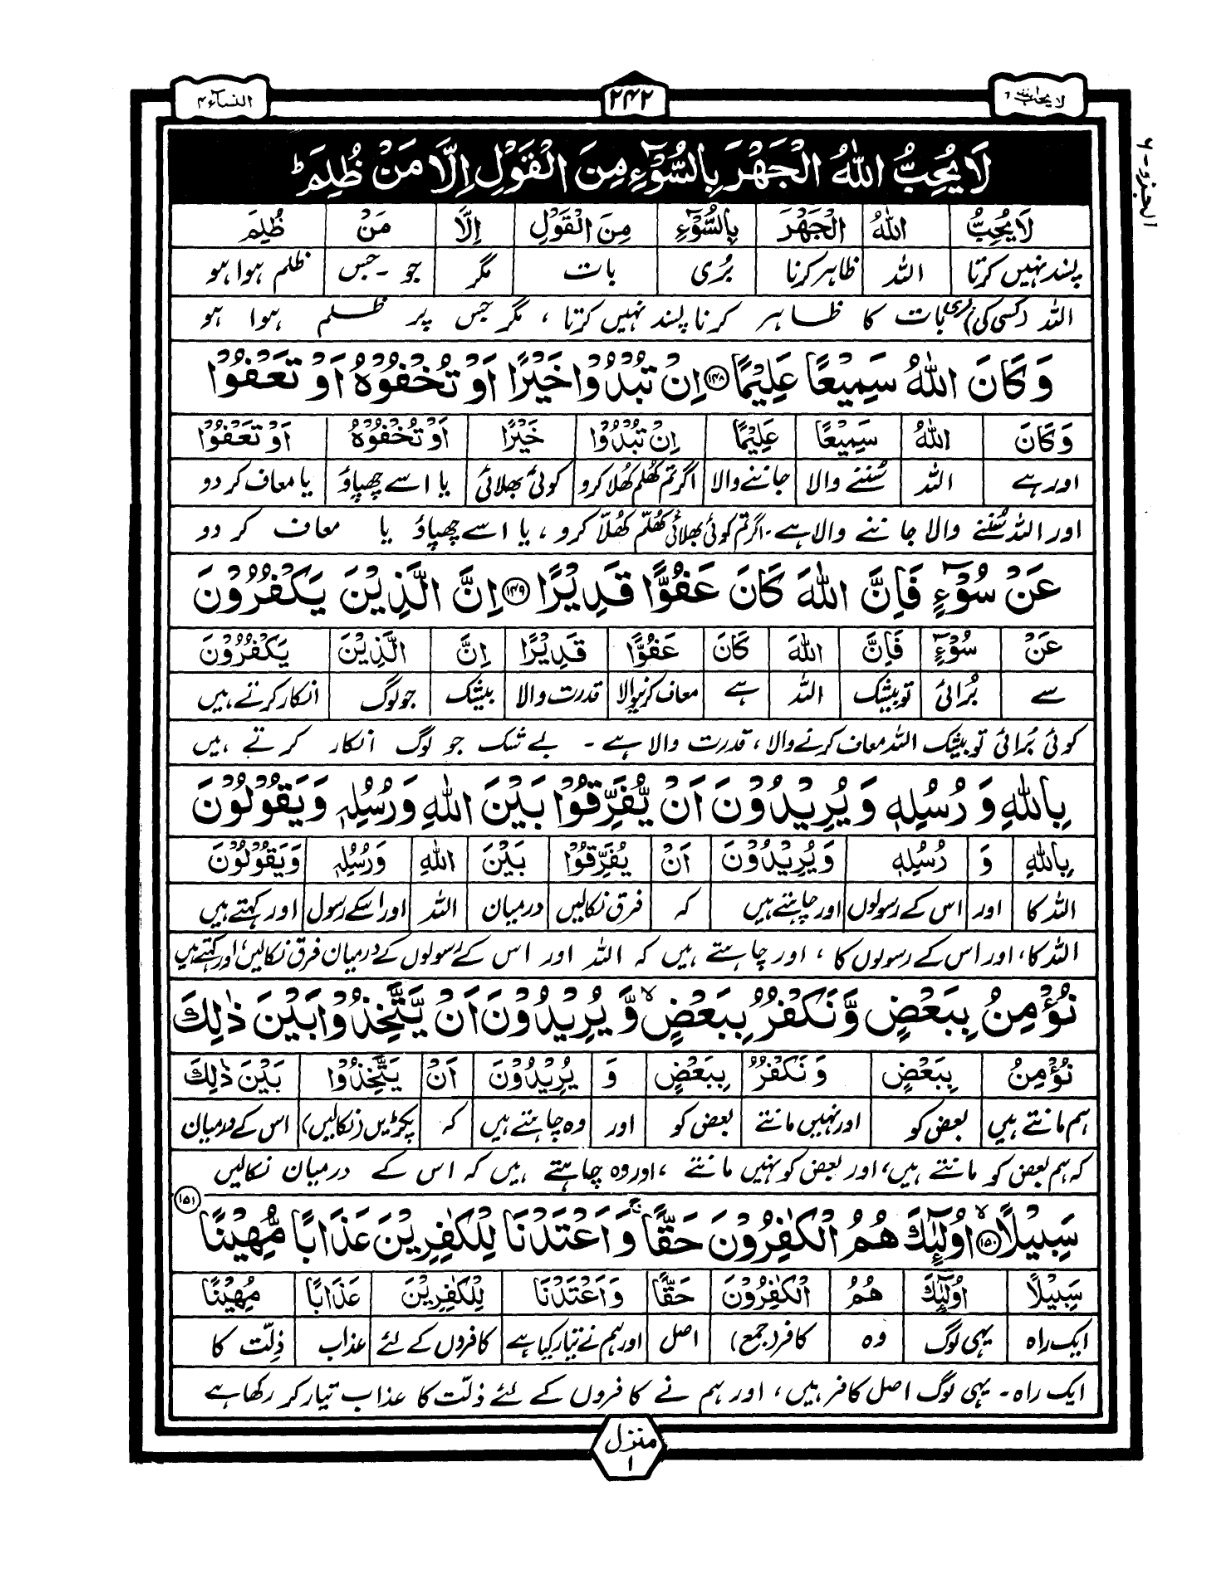 لا يحب الله ٦
٢٤٢
النساء ٤
الجزء - ٦
لَا يُحِبُّ اللّٰهُ الْجَهْرَ بِالسُّوْٓءِ مِنَ الْقَوْلِ اِلَّا مَنْ ظُلِمَ ؕ
لَا يُحِبُّ اللّٰهُ الْجَهْرَ بِالسُّوْٓءِ مِنَ الْقَوْلِ اِلَّا مَنْ ظُلِمَ
پسند نہیں کرتا اللہ ظاہر کرنا بُری بات مگر جو - جس ظلم ہوا ہو
اللہ (کسی کی) بُری بات کا ظاہر کرنا پسند نہیں کرتا ، مگر جس پر ظلم ہوا ہو
وَكَانَ اللّٰهُ سَمِيْعًا عَلِيْمًا ﴿۱۴۸﴾ اِنْ تُبْدُوْا خَيْرًا اَوْ تُخْفُوْهُ اَوْ تَعْفُوْا
وَكَانَ اللّٰهُ سَمِيْعًا عَلِيْمًا اِنْ تُبْدُوْا خَيْرًا اَوْ تُخْفُوْهُ اَوْ تَعْفُوْا
اور ہے اللہ سُننے والا جاننے والا اگر تم کھلم کھلا کرو کوئی بھلائی یا اسے چھپاؤ یا معاف کر دو
اور اللہ سُننے والا جاننے والا ہے ۔ اگر تم کوئی بھلائی کھُلّم کھُلّا کرو ، یا اسے چھپاؤ یا معاف کر دو
عَنْ سُوْٓءٍ فَاِنَّ اللّٰهَ كَانَ عَفُوًّا قَدِيْرًا ﴿۱۴۹﴾ اِنَّ الَّذِيْنَ يَكْفُرُوْنَ
عَنْ سُوْٓءٍ فَاِنَّ اللّٰهَ كَانَ عَفُوًّا قَدِيْرًا اِنَّ الَّذِيْنَ يَكْفُرُوْنَ
سے بُرائی تو بیشک اللہ ہے معاف کرنیوالا قدرت والا بیشک جو لوگ انکار کرتے ہیں
کوئی بُرائی تو بیشک اللہ معاف کرنے والا ، قدرت والا ہے ۔ بے شک جو لوگ انکار کرتے ہیں
بِاللّٰهِ وَ رُسُلِهٖ وَ يُرِيْدُوْنَ اَنْ يُّفَرِّقُوْا بَيْنَ اللّٰهِ وَ رُسُلِهٖ وَ يَقُوْلُوْنَ
بِاللّٰهِ وَ رُسُلِهٖ وَ يُرِيْدُوْنَ اَنْ يُفَرِّقُوْا بَيْنَ اللّٰهِ وَرُسُلِهٖ وَيَقُوْلُوْنَ
اللہ کا اور اس کے رسولوں اور چاہتے ہیں کہ فرق نکالیں درمیان اللہ اور اسکے رسول اور کہتے ہیں
اللہ کا ، اور اس کے رسولوں کا ، اور چاہتے ہیں کہ اللہ اور اس کے رسولوں کے درمیان فرق نکالیں ، اور کہتے ہیں
نُؤْمِنُ بِبَعْضٍ وَّ نَكْفُرُ بِبَعْضٍ ۙ وَّ يُرِيْدُوْنَ اَنْ يَّتَّخِذُوْا بَيْنَ ذٰلِكَ
نُؤْمِنُ بِبَعْضٍ وَ نَكْفُرُ بِبَعْضٍ وَ يُرِيْدُوْنَ اَنْ يَتَّخِذُوْا بَيْنَ ذٰلِكَ
ہم مانتے ہیں بعض کو اور نہیں مانتے بعض کو اور وہ چاہتے ہیں کہ پکڑیں (نکالیں) اس کے درمیان
کہ ہم بعض کو مانتے ہیں ، اور بعض کو نہیں مانتے ، اور وہ چاہتے ہیں کہ اس کے درمیان نکالیں
سَبِيْلًا ﴿۱۵۰﴾ ۙ اُولٰٓئِكَ هُمُ الْكٰفِرُوْنَ حَقًّا ۚ وَ اَعْتَدْنَا لِلْكٰفِرِيْنَ عَذَابًا مُّهِيْنًا ﴿۱۵۱﴾
سَبِيْلًا اُولٰٓئِكَ هُمُ الْكٰفِرُوْنَ حَقًّا وَ اَعْتَدْنَا لِلْكٰفِرِيْنَ عَذَابًا مُهِيْنًا
ایک راہ یہی لوگ وہ کافر (جمع) اصل اور ہم نے تیار کیا ہے کافروں کے لئے عذاب ذِلّت کا
ایک راہ ۔ یہی لوگ اصل کافر ہیں ، اور ہم نے کافروں کے لئے ذلّت کا عذاب تیار کر رکھا ہے
منزل
١